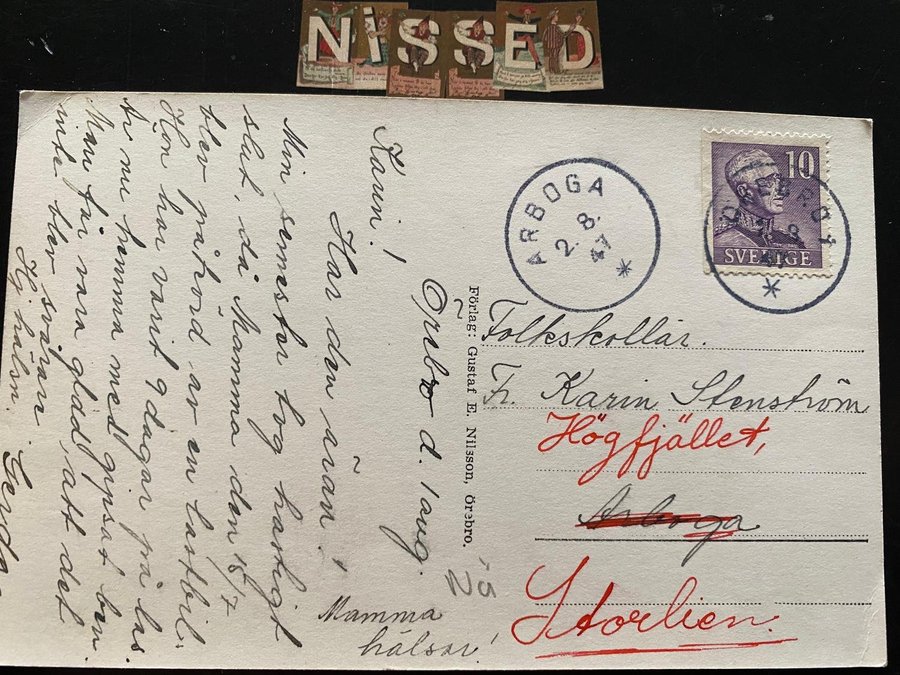 NISSED
Örebro d. 1 aug.
Karin!
Har den äran!
Min semester tog hastigt
slut, då Mamma den 18/7
blev påkörd av en lastbil.
Hon har varit 9 dagar på las.
nu hemma med gipsat ben.
Man får vara glad, att det
inte blev svårare.
Hj. hälsn. Gerda
Mamma
hälsar!
Förlag: Gustaf E. Nilsson, Örebro.
ARBOGA
2.8.
47
*
10
SVERIGE
ÖREBRO 1
8
47
*
Folkskollär.
Fr. Karin Stenström
Högfjället,
Arboga
Storlien.